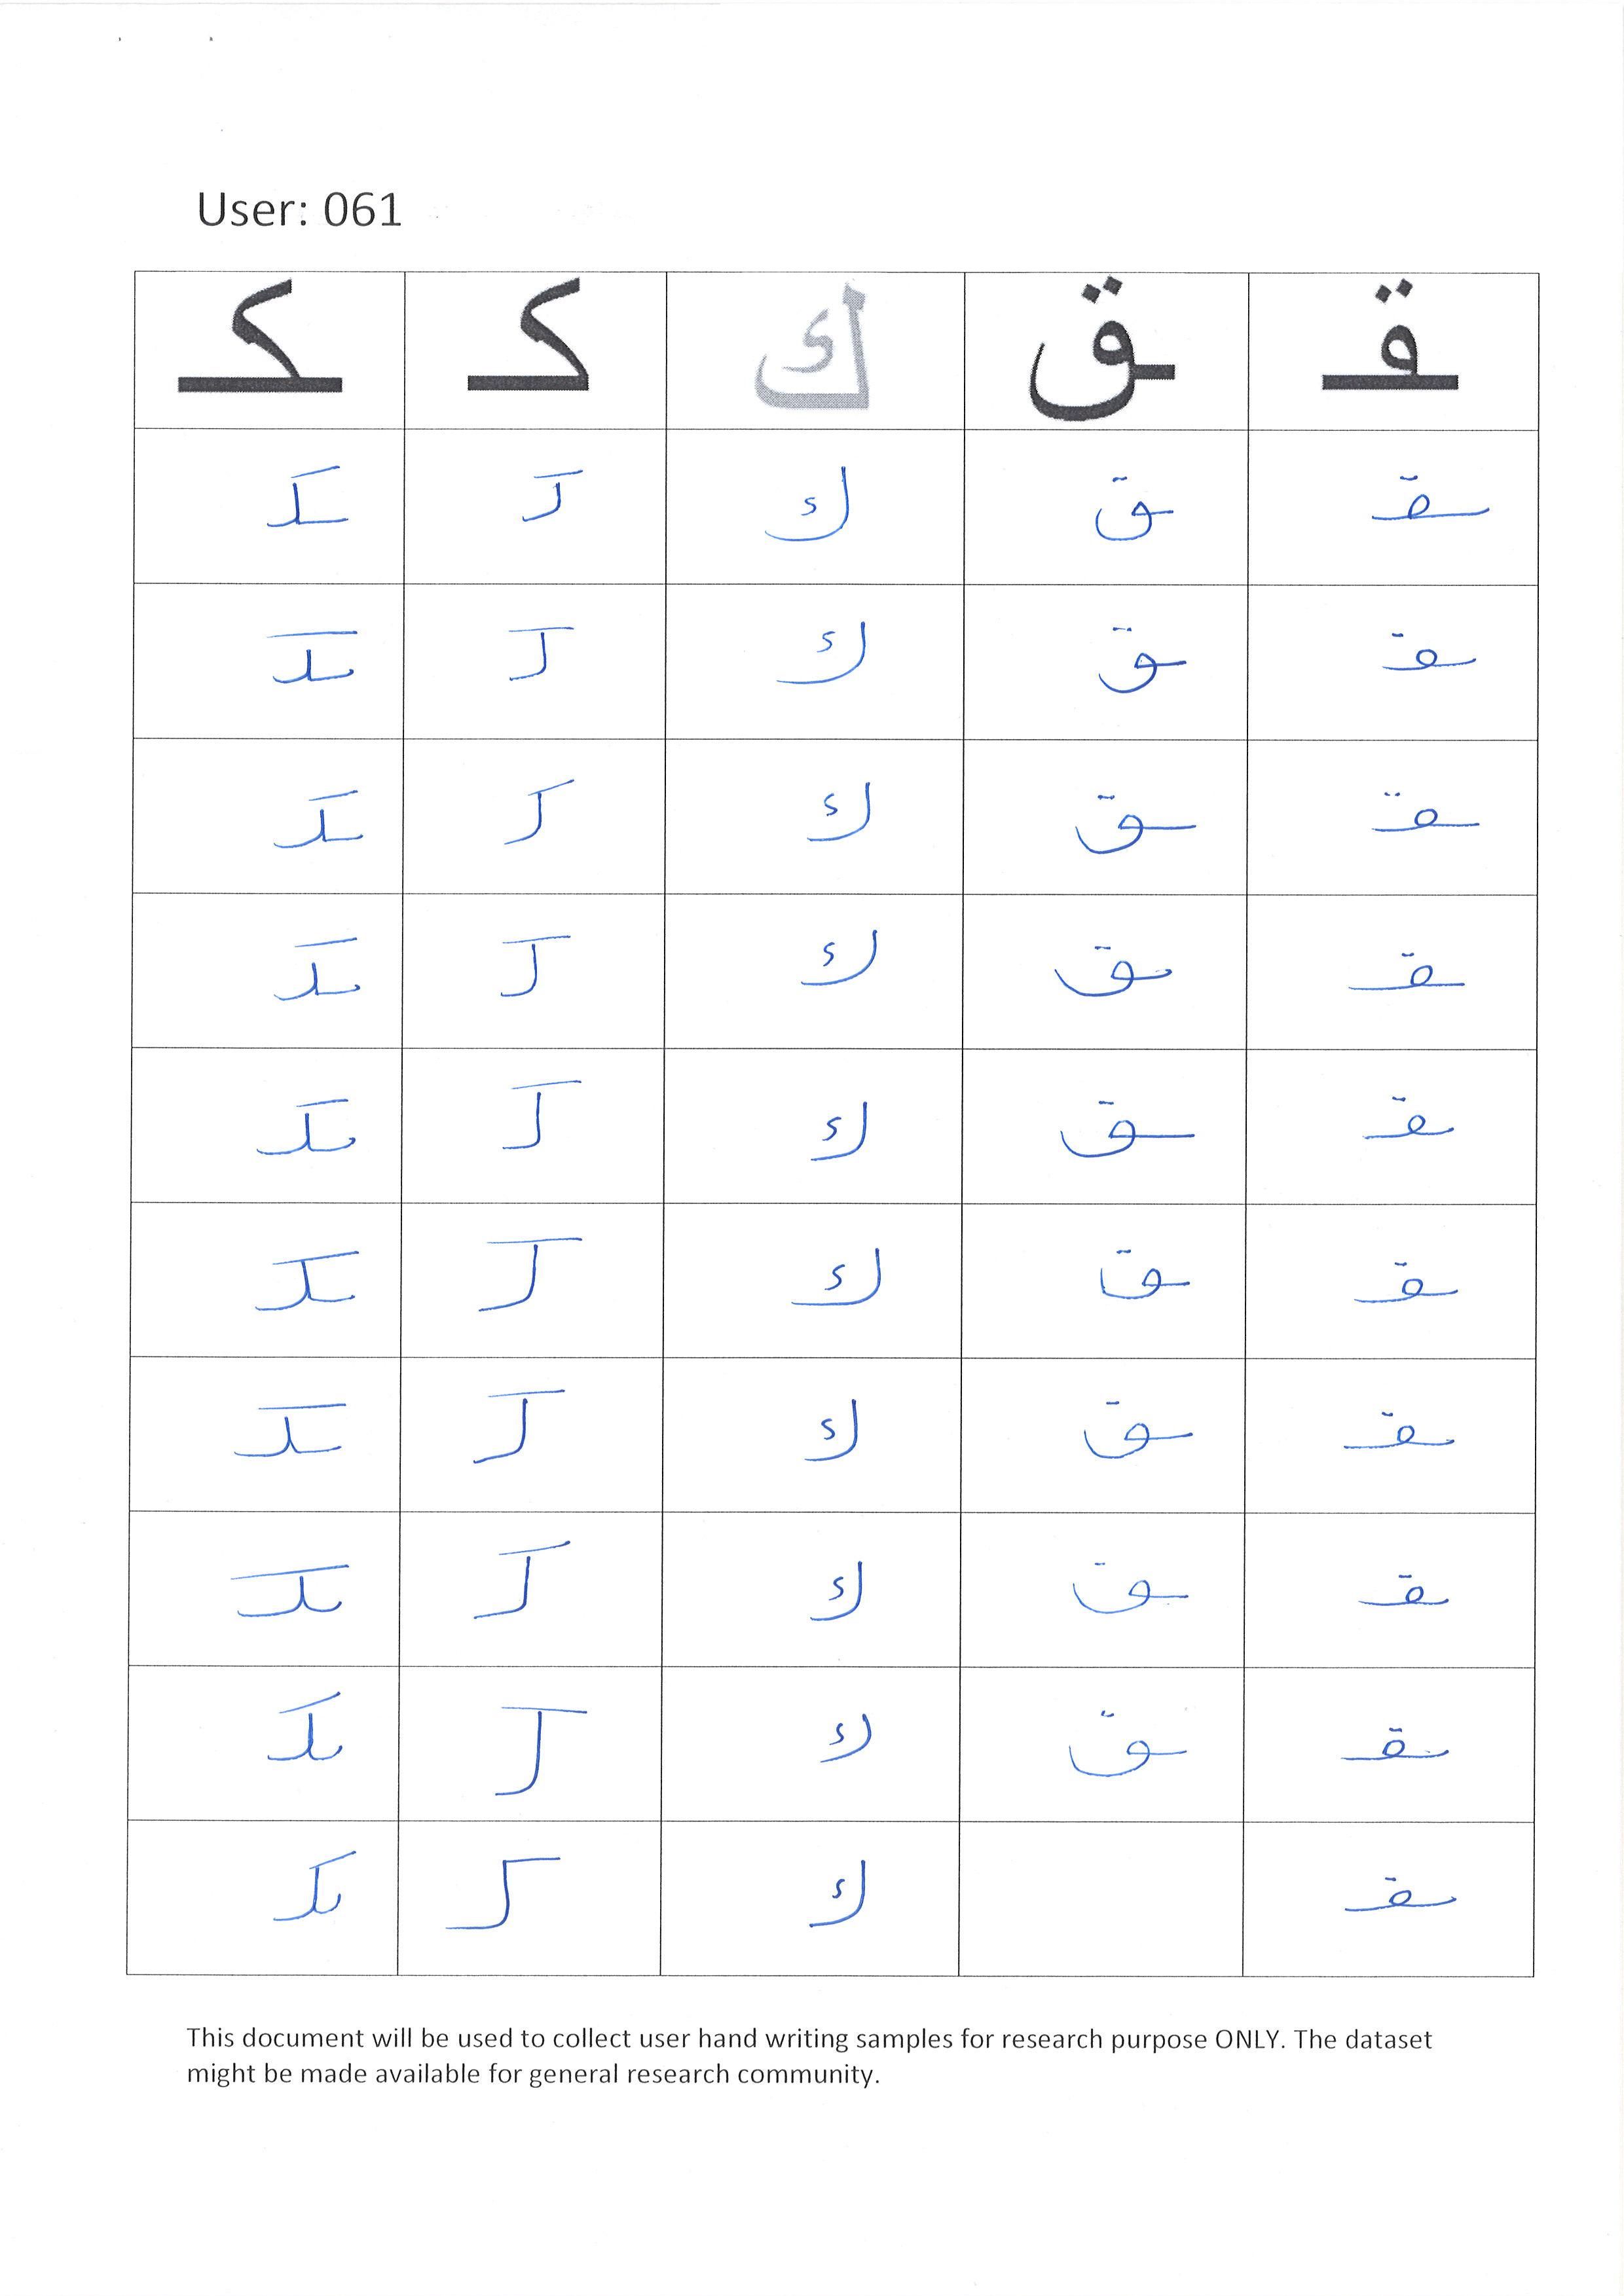 User: 061
ـقـ ـق ك كـ ـكـ
ـقـ ـق ك كـ ـكـ
ـقـ ـق ك كـ ـكـ
ـقـ ـق ك كـ ـكـ
ـقـ ـق ك كـ ـكـ
ـقـ ـق ك كـ ـكـ
ـقـ ـق ك كـ ـكـ
ـقـ ـق ك كـ ـكـ
ـقـ ـق ك كـ ـكـ
ـقـ ـق ك كـ ـكـ
ـقـ ك كـ ـكـ
This document will be used to collect user hand writing samples for research purpose ONLY. The dataset
might be made available for general research community.